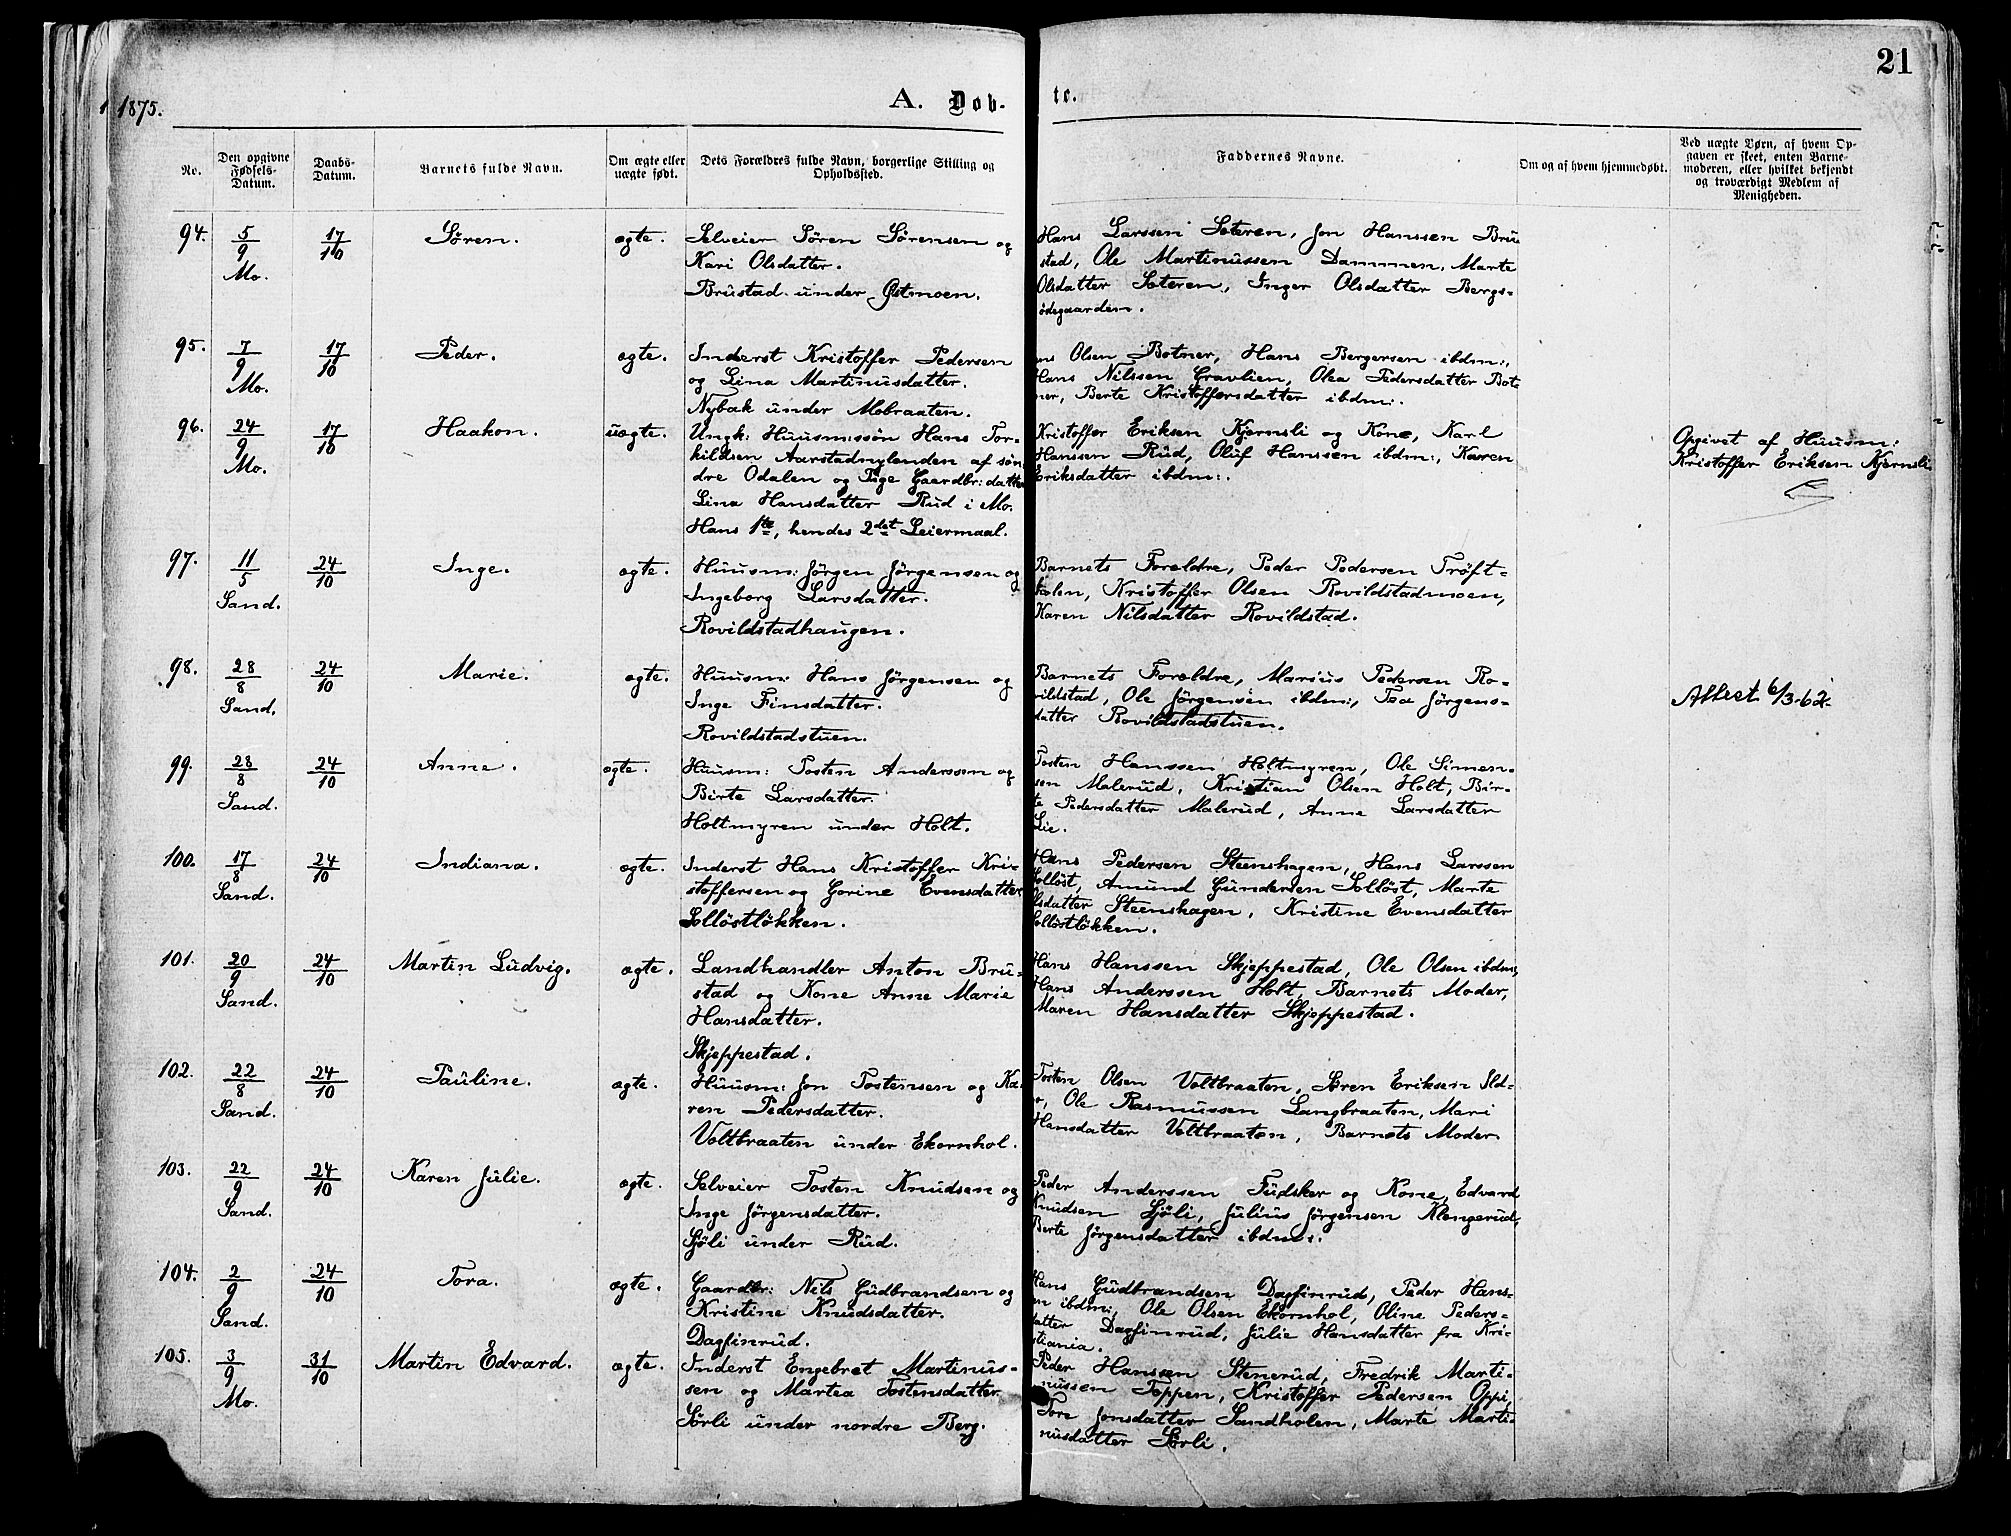 21
1875.
A. Døb-
te.
No.
Den opgivne Fødsels-Datum.
Daabs-Datum.
Barnets fulde Navn.
Om ægte eller uægte født.
Dets Forældres fulde Navn, borgerlige Stilling og Opholdssted.
Faddernes Navne.
Om og af hvem hjemmedøbt.
Ved uægte Børn, af hvem Op-
gaven er skeet, enten Barne-
moderen, eller hvilket bekjendt
og troværdigt Medlem af
Menigheden.
94. 5/9 Mo. 17/10 Søren. ægte.
Selveier Søren Sørensen og
Kari Olsdatter.
Brustad under Østmoen.
Hans Larssen Sæteren, Jon Hanssen Bru
stad, Ole Martinussen Dammen, Marte
Olsdatter Sæteren, Inger Olsdatter Bergs-
ødegaarden.
95. 7/9 Mo. 17/10 Peder. ægte.
Inderst Kristoffer Pedersen
og Lina Martinusdatter.
Nybak under Mobraaten.
Olsen Botner, Hans Bergersen ibdm:,
Hans Nilssen Gravlien, Olea Pedersdatter Bot
ner, Berte Kristoffersdatter ibdm:.
96. 24/9 Mo. 17/10 Haakon. uægte.
Ungk: Huusm:søn Hans Tor-
kildsen Aarstadnylenden af søn
dre Odalen og Pige Gaardbr: datter
Lina Hansdatter Rud i Mo.
Hans 1te, hendes 2det Leiermaal.
Kristoffer Eriksen Kjernsli og Kone, Karl
Hanssen Rud, Oluf Hanssen ibdm:, Karen
Eriksdatter ibdm:.
Opgivet af Huusm:
Kristoffer Eriksen Kjernsli
97. 11/5 Sand. 24/10 Inge. ægte.
Huusm: Jørgen Jørgensen og
Ingeborg Larsdatter.
Rovildstadhaugen.
Barnets Forældre, Peder Pedersen Trøft-
Kristoffer Olsen Rovildstadmoen,
Karen Nilsdatter Rovildstad.
98. 28/8 Sand. 24/10 Marie. ægte.
Huusm: Hans Jørgensen og
Inge Finsdatter.
Rovildstadstuen.
Barnets Forældre, Marius Pedersen Ro-
vildstad, Ole Jørgensen ibdm:, Tea Jørgens-
datter Rovildstadstuen.
Attest 6/3-62.
99. 28/8 Sand. 24/10 Anne. ægte.
Huusm: Tosten Anderssen og
Birte Larsdatter.
Holtmyren under Holt.
Tosten Hanssen Holtmyren, Ole Simen-
sen Malerud, Kristian Olsen Holt, Bir-
te Pedersdatter Malerud, Anne Larsdatter
Lie.
100. 17/8 Sand. 24/10 Indiana. ægte.
Inderst Hans Kristoffer Kri-
stoffersen og Gorine Evensdatter
Solløstløkken.
Hans Pedersen Steenshagen, Hans Larssen
Solløst, Amund Gundersen Solløst, Marte
Olsdatter Steenshagen, Kristine Evensdatter
Solløstløkken.
101. 20/9 Sand. 24/10 Martin Ludvig. ægte.
Landhandler Anton Bru-
stad og Kone Anne Marie
Hansdatter.
Skjeppestad.
Hans Hanssen Skjeppestad, Ole Olsen ibdm,
Hans Anderssen Holt, Barnets Moder,
Maren Hansdatter Skjeppestad.
102. 22/8 Sand. 24/10 Pauline. ægte.
Huusm: Jon Tostensen og Ka-
ren Pedersdatter.
Voltbraaten under Ekornhol.
Tosten Olsen Voltbraaten, Søren Eriksen
Ole Rasmussen Langbraaten, Mari
Hansdatter Voltbraaten, Barnets Moder
103. 22/9 Sand. 24/10 Karen Julie. ægte.
Selveier Tosten Knudsen og
Inge Jørgensdatter.
Sjøli under Rud.
Peder Anderssen Fudsker og Kone, Edvard
Knudsen Sjøli, Julius Jørgensen Klengerud,
Berte Jørgensdatter ibdm:.
104. 2/9 Sand. 24/10 Tora. ægte.
Gaardbr: Nils Gudbrandsen og
Kristine Knudsdatter.
Dagfinrud.
Hans Gudbrandsen Dagfinrud, Peder Hans-
sen ibdm:, Ole Olsen Ekornhol, Oline Peders-
datter Dagfinrud, Julie Hansdatter fra Kri-
stiania.
105. 3/9 Mo. 31/10 Martin Edvard. ægte.
Inderst Engebret Martinus-
sen og Martea Tostensdatter
Sørli under nordre Berg.
Peder Hanssen Stenerud, Fredrik Marti-
nussen Toppen, Kristoffer Pedersen Oppi,
Tore Jonsdatter Sandholen, Marte Marti-
nusdatter Sørli.